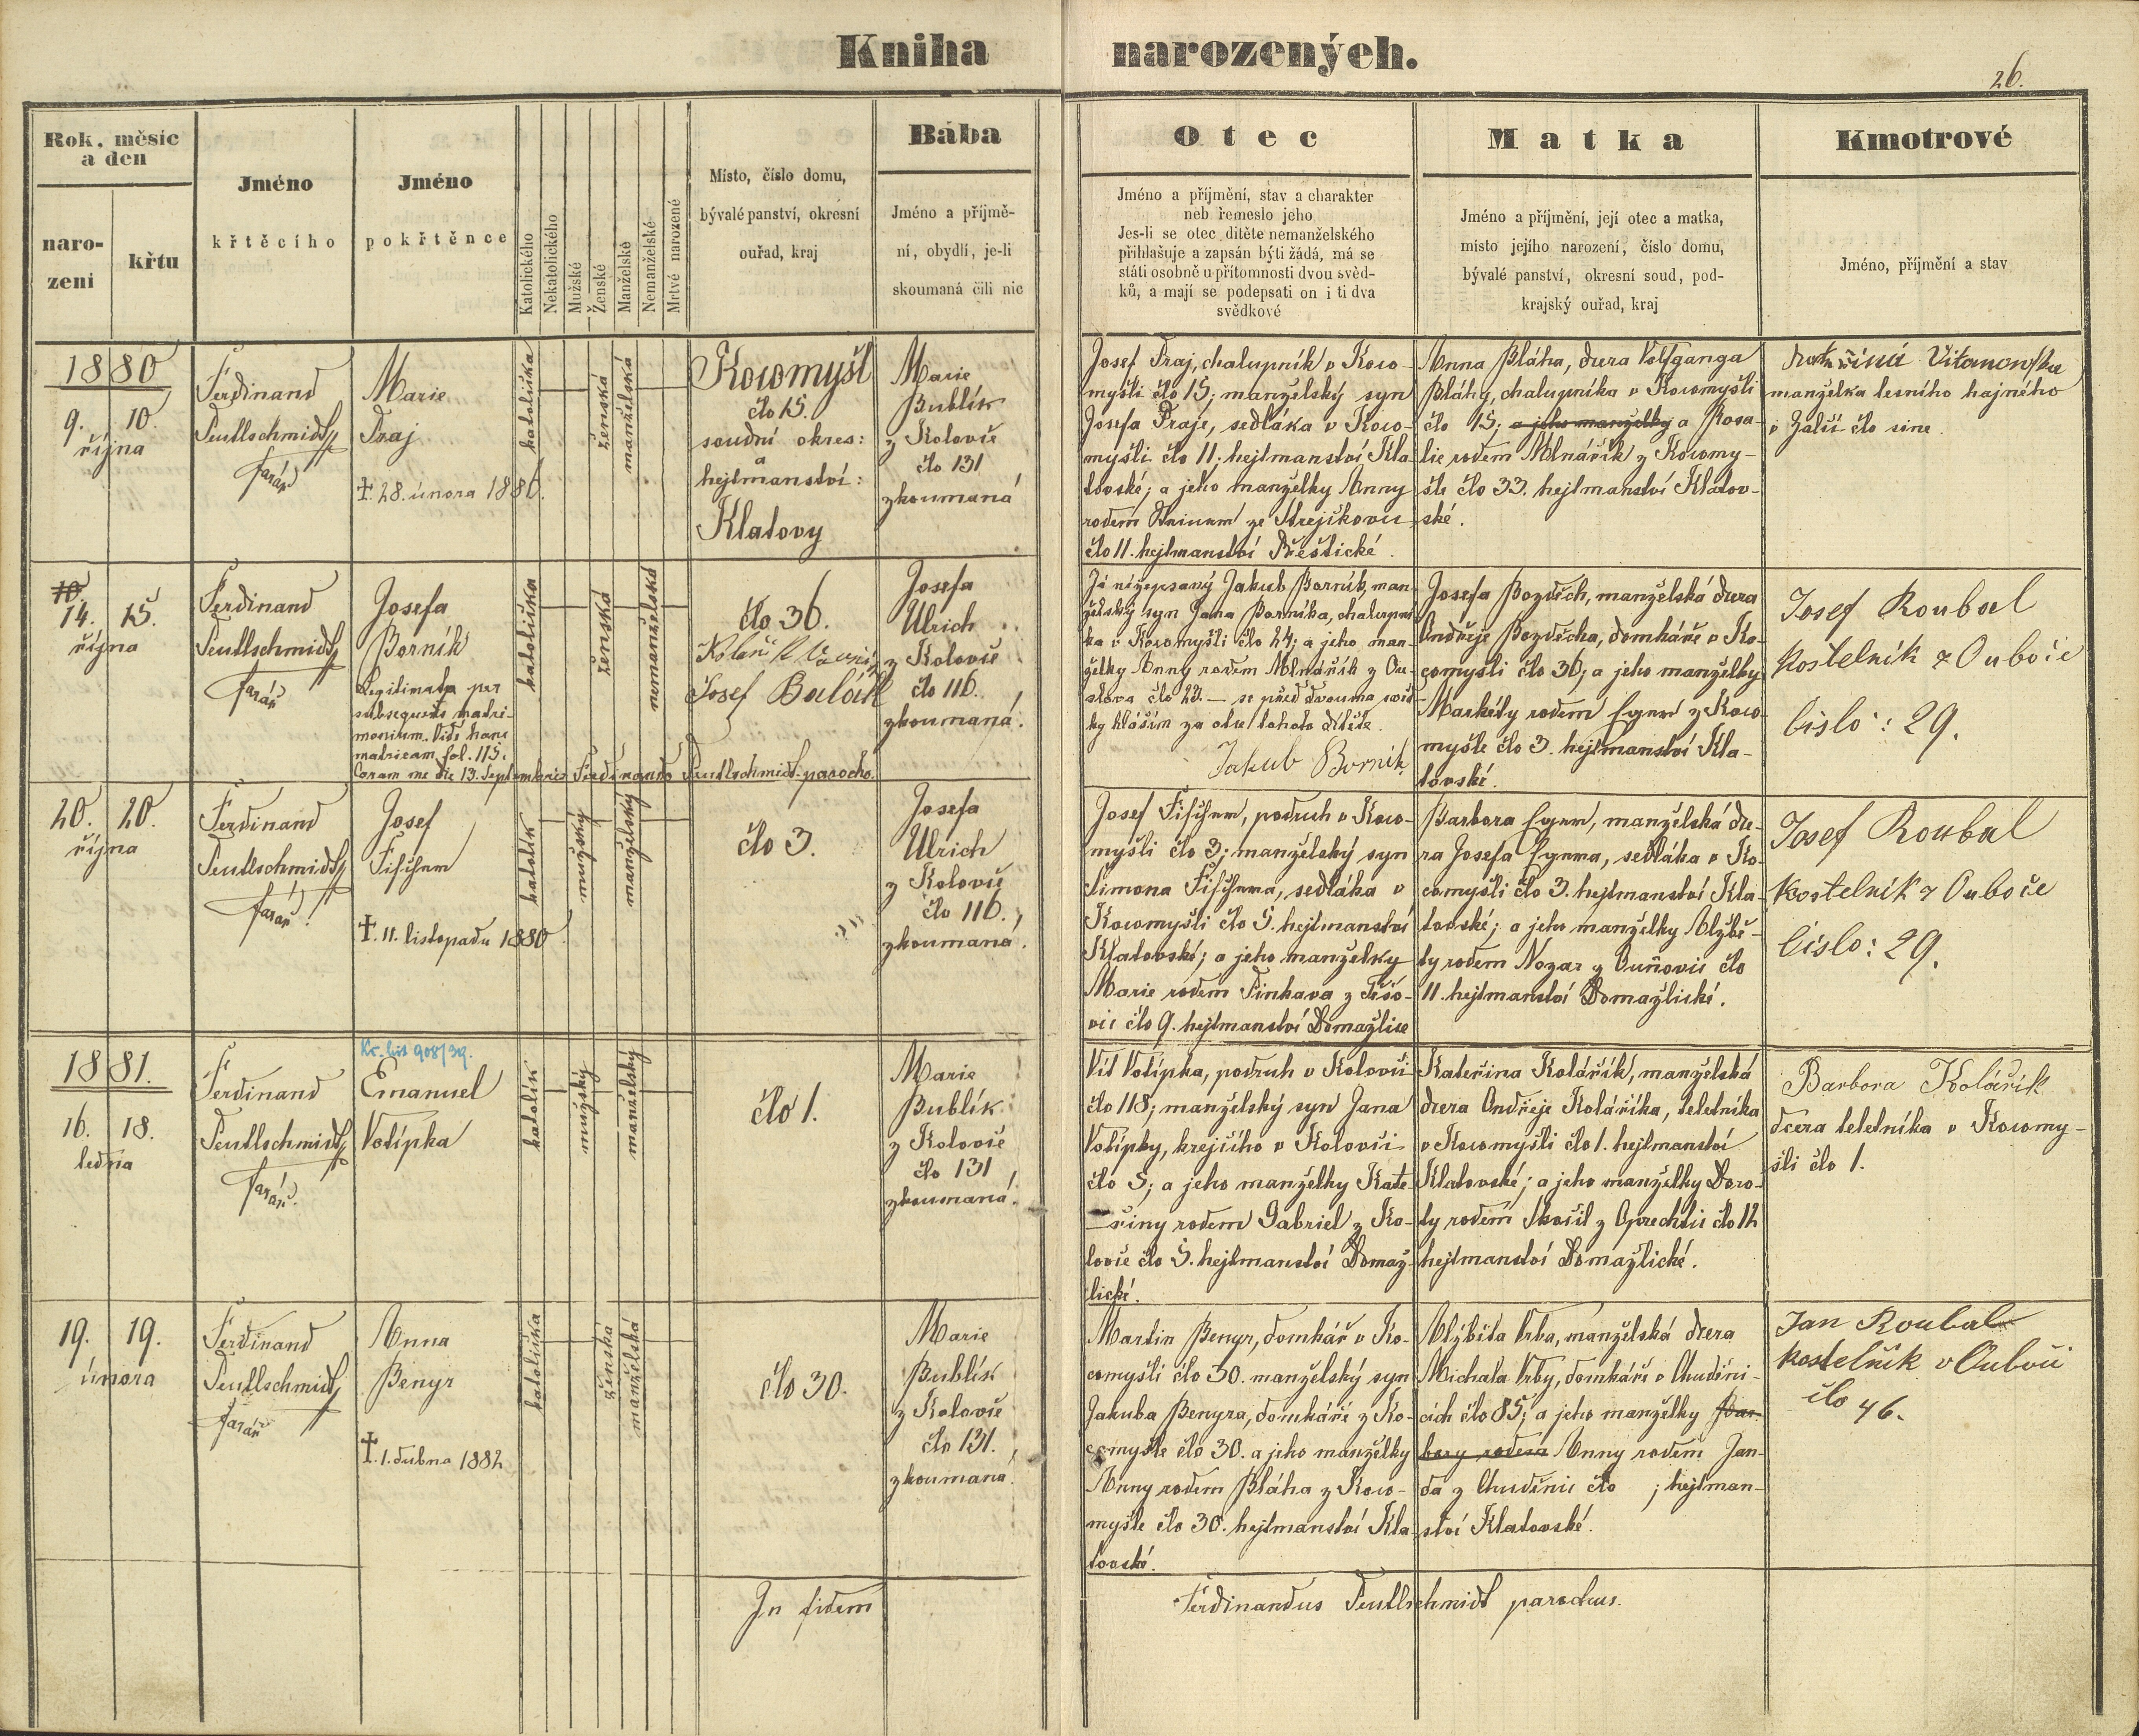 Kniha narozených.
26.
Rok, měsíc
a den
naro-
zení
křtu
Jméno
křtěcího
Jméno
pokřtěnce
Katolického
Nekatolického
Mužské
Ženské
Manželské
Nemanželské
Mrtvé narozené
Místo, číslo domu,
bývalé panství, okresní
ouřad, kraj
Bába
Jméno a příjmě-
ní, obydlí, je-li
skoumaná čili nic
Otec
Jméno a příjmění, stav a charakter
neb řemeslo jeho
Jes-li se otec dítěte nemanželského
přihlašuje a zapsán býti žádá, má se
státi osobně u přítomnosti dvou svěd-
ků, a mají se podepsati on i ti dva
svědkové
Matka
Jméno a příjmění, její otec a matka,
místo jejího narození, číslo domu,
bývalé panství, okresní soud, pod-
krajský ouřad, kraj
Kmotrové
Jméno, příjmění a stav
1880
9. 10.
října
Ferdinand
Teutlschmidt
farář
Marie
Fraj
†. 28. února 1886.
katolička
ženská
manželská
Kocomyšl
člo 15.
soudní okres:
a
hejtmanství:
Klatovy
Marie
Bublík
z Koloveče
člo 131
zkoumaná
Josef Fraj, chalupník v Koco-
myšli člo 15; manželský syn
Josefa Fraje, sedláka v Koco-
myšli člo 11; hejtmanství Kla-
tovské; a jeho manželky Anny
rodem
člo 11. hejtmanství Přeštické.
Anna Bláha, dcera Volfganga
Bláhy, chalupníka v Kocomyšli
člo 15; a jeho manželky a Rosa-
lie rodem Mlnářík z Kocomy-
šle člo 33. hejtmanství Klatov-
ské.
manželka lesního hajného
v člo sine.
10.
14. 15.
října
Ferdinand
Teutlschmidt
farář
Josefa
Borník
Legitimata per
subsequens matri-
monium. Vide hanc
matricam fol. 115.
Coram me die 13. Septembris Ferdinando Teutlschmidt parocho.
katolička
ženská
nemanželská
člo 36.
Josef Bulák
Josefa
Ulrich
z Koloveče
člo 116.
zkoumaná.
Já nížepsaný Jakub Borník, man-
želský syn Jana Borníka, chalupní-
ka v Kocomyšli člo 24; a jeho man-
želky Anny rodem Mlnářík z
člo 23. — se před dvouma svěd-
ky hlásím za otce tohoto dítěte.
Jakub Borník
Josefa Bozděch, manželská dcera
Ondřeje Bozděcha, domkáře v Ko-
comyšli člo 36; a jeho manželky
Markéty rodem z Koco-
myšle člo 3. hejtmanství Kla-
tovské.
Josef Roubal
Kostelník z Ouboče
číslo: 29.
20. 20.
října
Ferdinand
Teutlschmidt
farář!
Josef
†. 11. listopadu 1880.
katolík
mužský
manželský
člo 3.
Josefa
Ulrich
z Koloveče
člo 116.
zkoumaná.
Josef podruh v Koco-
myšli člo 3; manželský syn
Šimona sedláka v
Kocomyšli člo 5. hejtmanství
Klatovské; a jeho manželky
Marie rodem Pinkava z
vic člo 9. hejtmanství Domažlice
Barbora manželská dce-
ra Josefa sedláka v Ko-
comyšli člo 3. hejtmanství Kla-
tovské; a jeho manželky Alžbě-
ty rodem Nozar z člo
11. hejtmanství Domažlické.
Josef Roubal
Kostelník z Ouboče
číslo: 29.
1881.
16. 18.
ledna
Ferdinand
Teutlschmidt
farář.
Kř. list 908/39.
Emanuel
Votípka
katolík
mužský
manželský
člo 1.
Marie
Bublík
z Koloveče
člo 131
zkoumaná.
Vít Votípka, podruh v Kolovči
člo 118; manželský syn Jana
Votípky, krejčího v Kolovči
člo 5; a jeho manželky Kate-
řiny rodem Gabriel z Ko-
loveče člo 5. hejtmanství Domaž-
lické.
Kateřina Kolářík, manželská
dcera Ondřeje Koláříka, teletníka
v Kocomyšli člo 1. hejtmanství
Klatovské; a jeho manželky Doro-
ty rodem Skočil z Oprechtic člo 12
hejtmanství Domažlické.
Barbora Kolářík
dcera teletníka v Kocomy-
šli člo 1.
19. 19.
února
Ferdinand
Teutlschmidt
farář
Anna
Benyr
†. 1. dubna 1882
katolička
ženská
manželská
člo 30.
Marie
Bublík
z Koloveče
člo 131.
zkoumaná.
Martin Benyr, domkář v Ko-
comyšli člo 30. manželský syn
Jakuba Benyra, domkáře z Ko-
comyšle člo 30. a jeho manželky
Anny rodem Bláha z Koco-
myšle člo 30. hejtmanství Kla-
tovské.
Alžběta Vrba, manželská dcera
Michala Vrby, domkáře v Chudeni-
cích člo 85; a jeho manželky Bar-
bory rodem Anny rodem Jan-
da z Chuděnic člo ; hejtman-
ství Klatovské.
Jan Roubal
kostelník v Ouboči
člo 46.
In fidem Ferdinandus Teutlschmidt parochus.